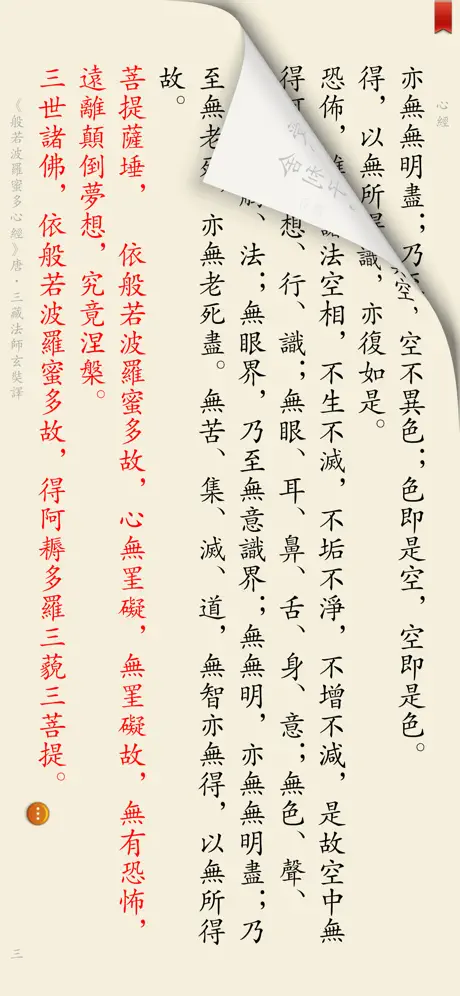 心經
亦無無明盡；乃
空，空不異色；色即是空，空即是色。
得，以無所得
識，亦復如是。
恐佈，
法空相，不生不滅，不垢不淨，不增不減，是故空中無
得
想、行、識；無眼、耳、鼻、舌、身、意；無色、聲、
、法；無眼界，乃至無意識界；無無明，亦無無明盡；乃
至無老死，亦無老死盡。無苦、集、滅、道，無智亦無得，以無所得
故。
菩提薩埵，依般若波羅蜜多故，心無罣礙，無罣礙故，無有恐怖，
遠離顛倒夢想，究竟涅槃。
三世諸佛，依般若波羅蜜多故，得阿耨多羅三藐三菩提。
《般若波羅蜜多心經》唐·三藏法師玄奘譯
三